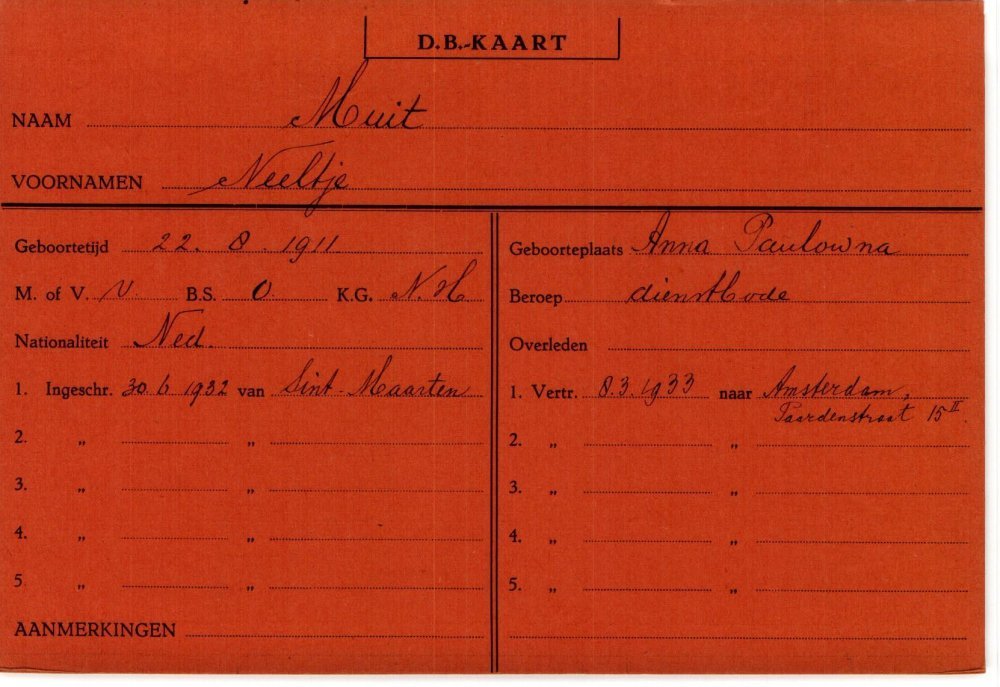 D.B.-KAART
NAAM Muit
VOORNAMEN Neeltje
Geboortetijd 22. 8. 1911
M. of V. V B.S. O. K.G. N.H
Nationaliteit Ned.
1. Ingeschr. 30.6 1932 van Sint-Maarten
2. „ „
3. „ „
4. „ „
5. „ „
AANMERKINGEN
Geboorteplaats Anna Paulowna
Beroep dienstbode
Overleden
1. Vertr. 8.3.1933 naar Amsterdam,
Paardenstraat 15 II.
2. „ „
3. „ „
4. „ „
5. „ „